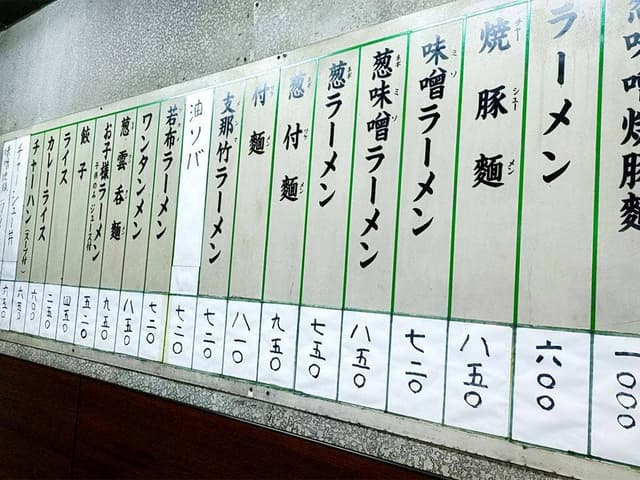 味噌焼豚麺
一〇〇〇
ラーメン
六〇〇
焼豚麺
チャーシューメン
八五〇
味噌ラーメン
ミソ
七二〇
葱味噌ラーメン
ネギミソ
八五〇
葱ラーメン
ネギ
七五〇
葱付麺
ネギツケメン
九五〇
付麺
ツケメン
八一〇
支那竹ラーメン
七二〇
油ソバ
七二〇
若布ラーメン
七二〇
ワンタンメン
八五〇
葱雲呑麺
九五〇
お子様ラーメン
五二〇
餃子
四五〇
ライス
二五〇
カレーライス
六〇〇
チャーハン(スープ付)
六五〇
チャーシュー丼
六五〇